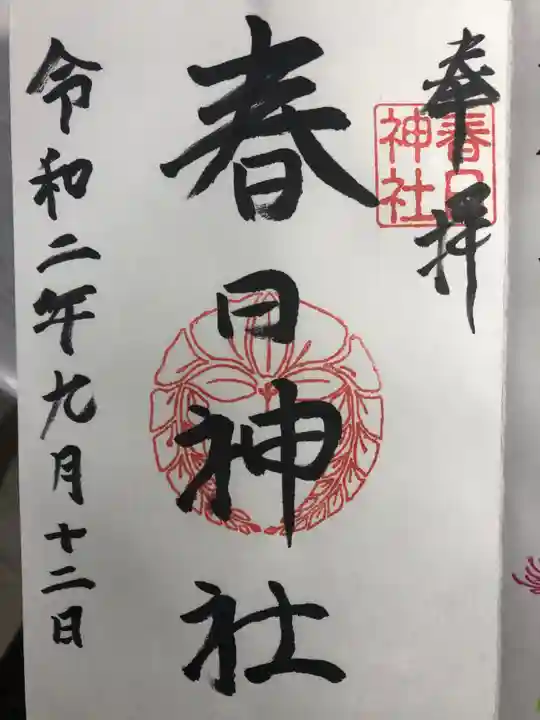 奉拝
春日
神社
春日神社
令和二年九月十二日